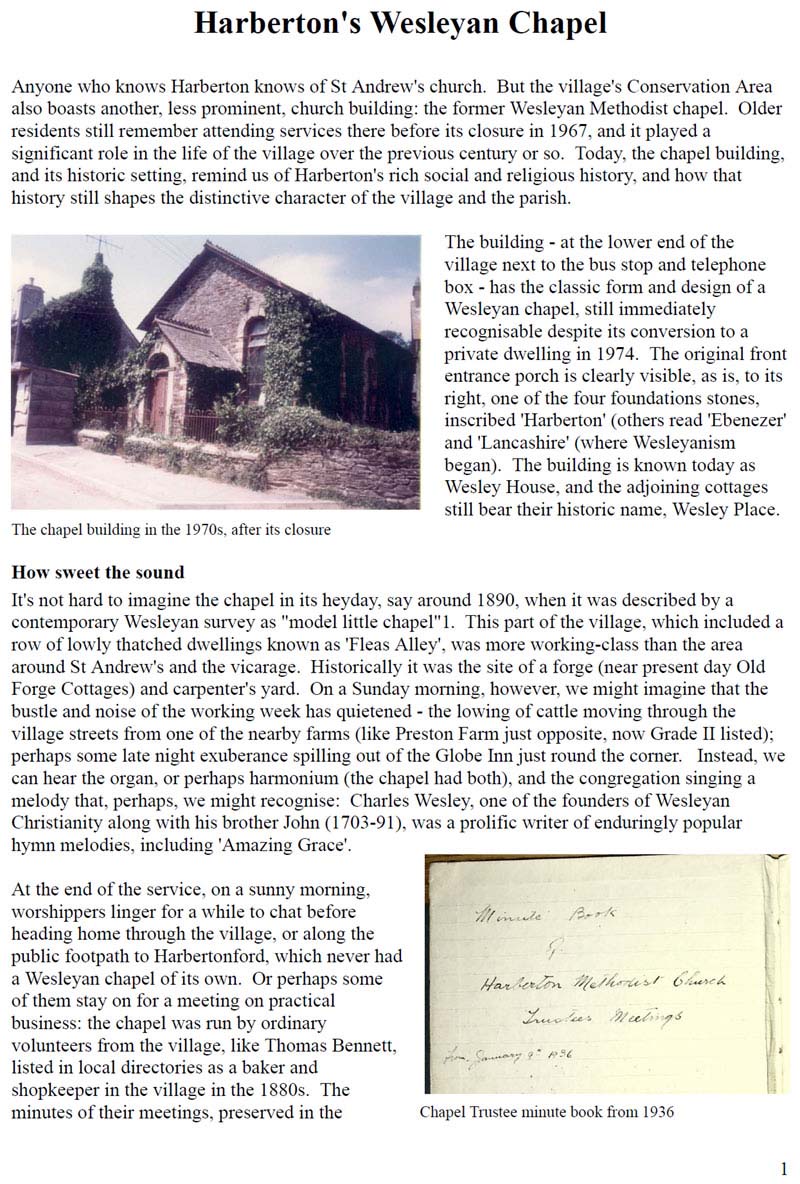 Harberton's Wesleyan Chapel
Anyone who knows Harberton knows of St Andrew's church.  But the village's Conservation Area
also boasts another, less prominent, church building: the former Wesleyan Methodist chapel.  Older
residents still remember attending services there before its closure in 1967, and it played a
significant role in the life of the village over the previous century or so.  Today, the chapel building,
and its historic setting, remind us of Harberton's rich social and religious history, and how that
history still shapes the distinctive character of the village and the parish.
The building - at the lower end of the
village next to the bus stop and telephone
box - has the classic form and design of a
Wesleyan chapel, still immediately
recognisable despite its conversion to a
private dwelling in 1974.  The original front
entrance porch is clearly visible, as is, to its
right, one of the four foundations stones,
inscribed 'Harberton' (others read 'Ebenezer'
and 'Lancashire' (where Wesleyanism
began).  The building is known today as
Wesley House, and the adjoining cottages
still bear their historic name, Wesley Place.
The chapel building in the 1970s, after its closure
How sweet the sound
It's not hard to imagine the chapel in its heyday, say around 1890, when it was described by a
contemporary Wesleyan survey as "model little chapel"1.  This part of the village, which included a
row of lowly thatched dwellings known as 'Fleas Alley', was more working-class than the area
around St Andrew's and the vicarage.  Historically it was the site of a forge (near present day Old
Forge Cottages) and carpenter's yard.  On a Sunday morning, however, we might imagine that the
bustle and noise of the working week has quietened - the lowing of cattle moving through the
village streets from one of the nearby farms (like Preston Farm just opposite, now Grade II listed);
perhaps some late night exuberance spilling out of the Globe Inn just round the corner.   Instead, we
can hear the organ, or perhaps harmonium (the chapel had both), and the congregation singing a
melody that, perhaps, we might recognise:  Charles Wesley, one of the founders of Wesleyan
Christianity along with his brother John (1703-91), was a prolific writer of enduringly popular
hymn melodies, including 'Amazing Grace'.
At the end of the service, on a sunny morning,
worshippers linger for a while to chat before
heading home through the village, or along the
public footpath to Harbertonford, which never had
a Wesleyan chapel of its own.  Or perhaps some
of them stay on for a meeting on practical
business: the chapel was run by ordinary
volunteers from the village, like Thomas Bennett,
listed in local directories as a baker and
shopkeeper in the village in the 1880s.  The
minutes of their meetings, preserved in the
Minute Book
of
Harberton Methodist Church
Trustees Meetings
from January 9th 1936
Chapel Trustee minute book from 1936
1